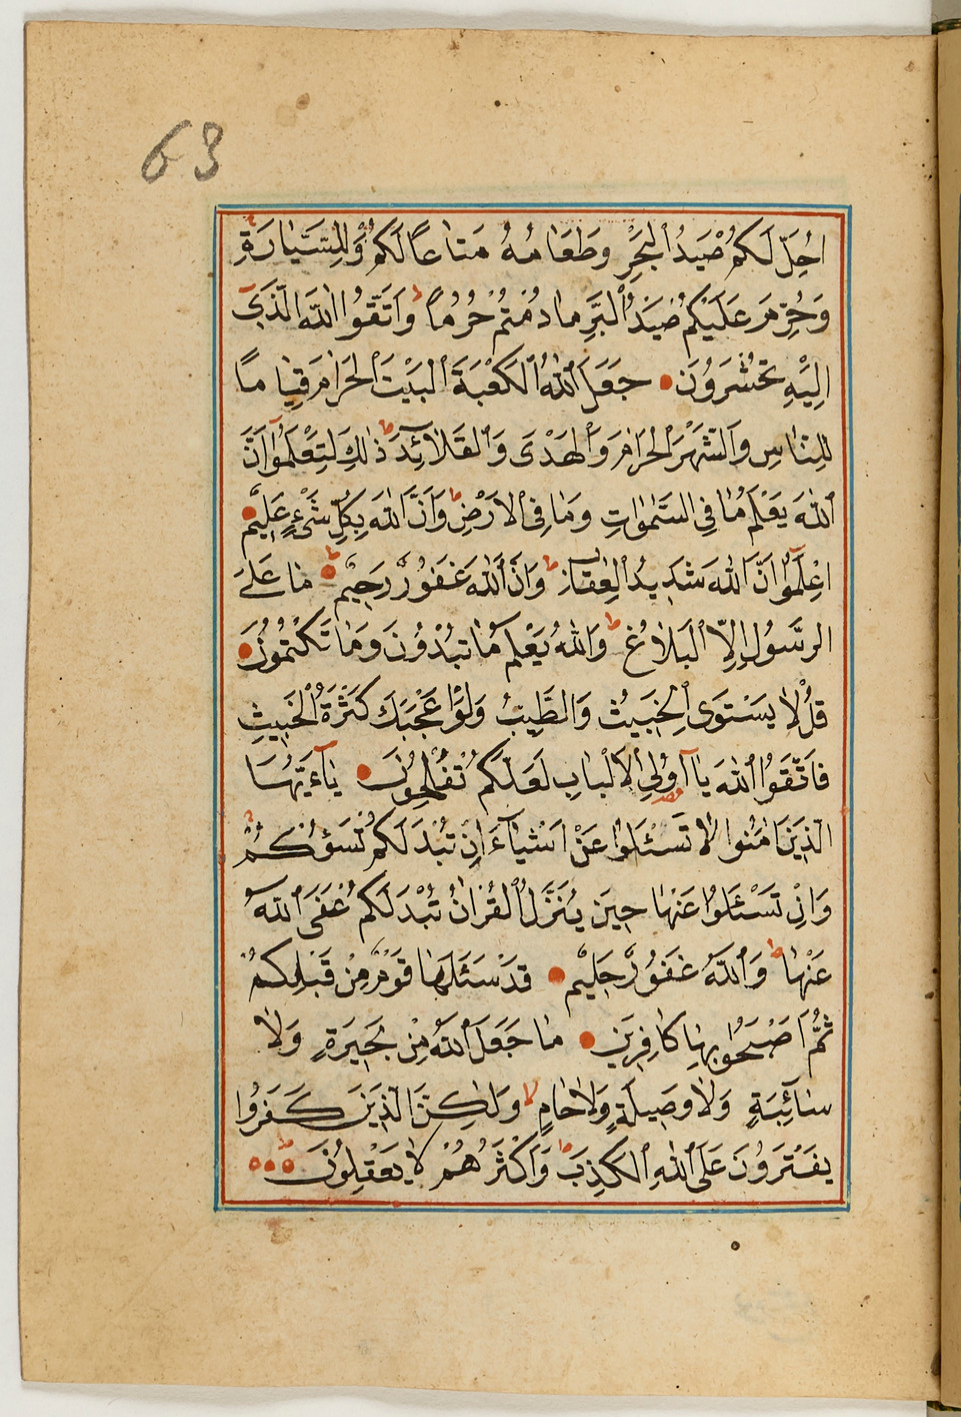 63
اُحِلَّ لَكُمْ صَيْدُ الْبَحْرِ وَطَعَامُهُ مَتَاعًا لَكُمْ وَلِلسَّيَّارَةِ
وَحُرِّمَ عَلَيْكُمْ صَيْدُ الْبَرِّ مَا دُمْتُمْ حُرُمًا وَاتَّقُوا اللّٰهَ الَّذِي
اِلَيْهِ تُحْشَرُونَ جَعَلَ اللّٰهُ الْكَعْبَةَ الْبَيْتَ الْحَرَامَ قِيَامًا
لِلنَّاسِ وَالشَّهْرَ الْحَرَامَ وَالْهَدْيَ وَالْقَلَائِدَ ذٰلِكَ لِتَعْلَمُوا اَنَّ
اللّٰهَ يَعْلَمُ مَا فِي السَّمٰوَاتِ وَمَا فِي الْاَرْضِ وَاَنَّ اللّٰهَ بِكُلِّ شَيْءٍ عَلِيمٌ
اِعْلَمُوا اَنَّ اللّٰهَ شَدِيدُ الْعِقَابِ وَاَنَّ اللّٰهَ غَفُورٌ رَحِيمٌ مَا عَلَى
الرَّسُولِ اِلَّا الْبَلَاغُ وَاللّٰهُ يَعْلَمُ مَا تُبْدُونَ وَمَا تَكْتُمُونَ
قُلْ لَا يَسْتَوِي الْخَبِيثُ وَالطَّيِّبُ وَلَوْ اَعْجَبَكَ كَثْرَةُ الْخَبِيثِ
فَاتَّقُوا اللّٰهَ يَا اُولِي الْاَلْبَابِ لَعَلَّكُمْ تُفْلِحُونَ يَا اَيُّهَا
الَّذِينَ اٰمَنُوا لَا تَسْئَلُوا عَنْ اَشْيَاءَ اِنْ تُبْدَ لَكُمْ تَسُؤْكُمْ
وَاِنْ تَسْئَلُوا عَنْهَا حِينَ يُنَزَّلُ الْقُرْاٰنُ تُبْدَ لَكُمْ عَفَى اللّٰهُ
عَنْهَا وَاللّٰهُ غَفُورٌ حَلِيمٌ قَدْ سَئَلَهَا قَوْمٌ مِنْ قَبْلِكُمْ
ثُمَّ اَصْبَحُوا بِهَا كَافِرِينَ مَا جَعَلَ اللّٰهُ مِنْ بَحِيرَةٍ وَلَا
سَائِبَةٍ وَلَا وَصِيلَةٍ وَلَا حَامٍ وَلٰكِنَّ الَّذِينَ كَفَرُوا
يَفْتَرُونَ عَلَى اللّٰهِ الْكَذِبَ وَاَكْثَرُهُمْ لَا يَعْقِلُونَ